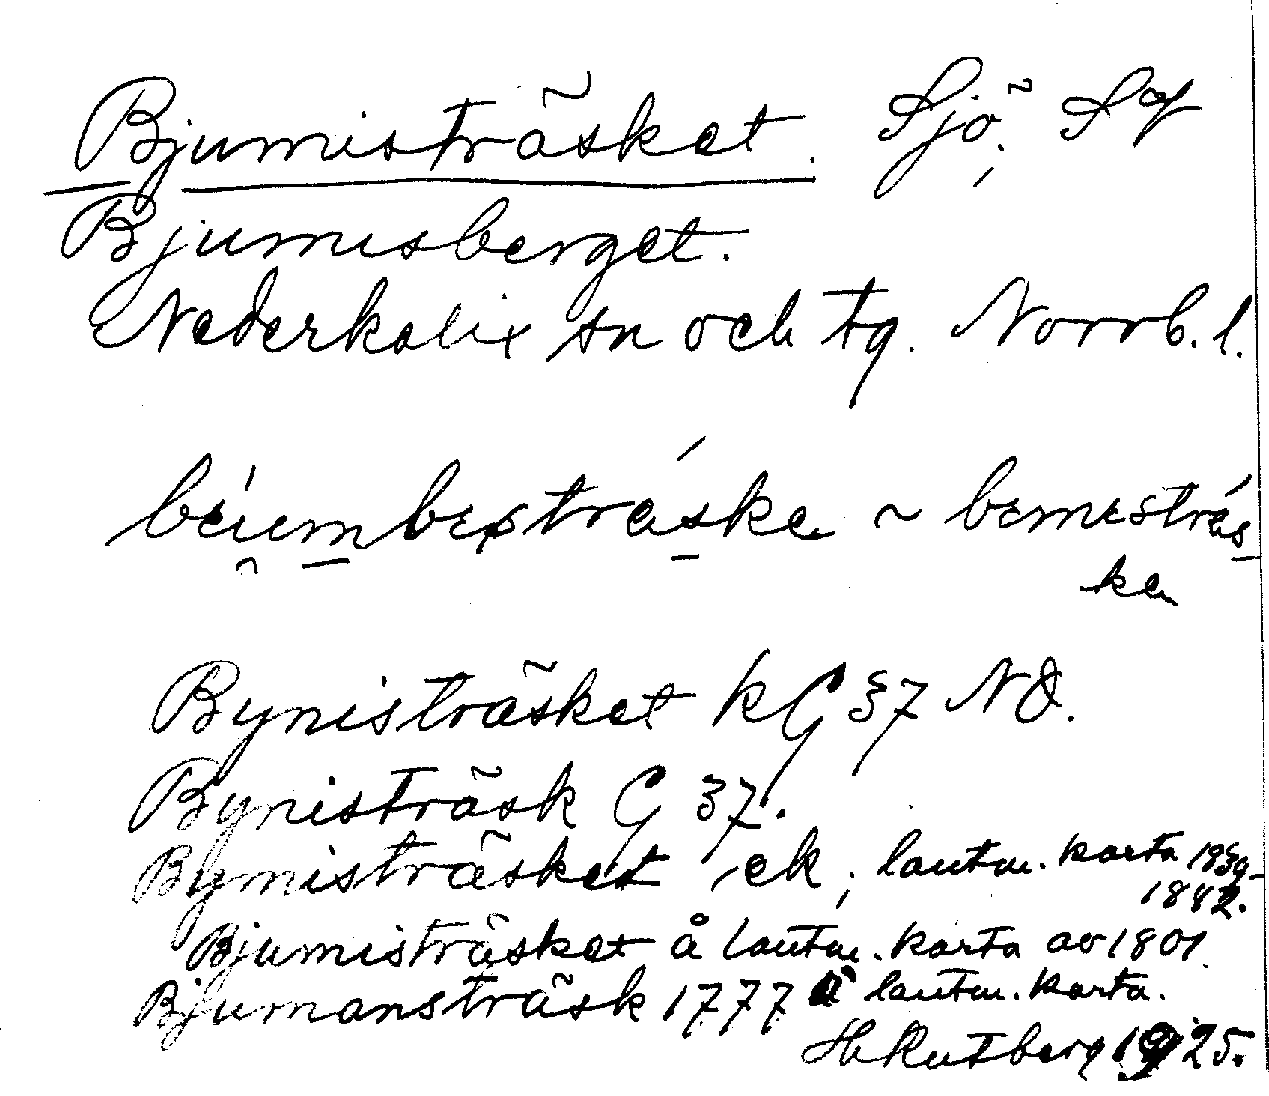 Bjumisträsket. Sjö; SV
Bjumisberget.
Nederkalix sn och tg. Norrb. l.
béiumbestráska ~ bemestrás
ka
Bynisträsket kG 37 NO.
Bynisträsk G 37.
Bymisträsket ek; lantm. karta
1882.
Bjumisträsket å lantm. karta av 1801.
Bjumansträsk 1777 å lantm. karta.
Rutberg 1925.